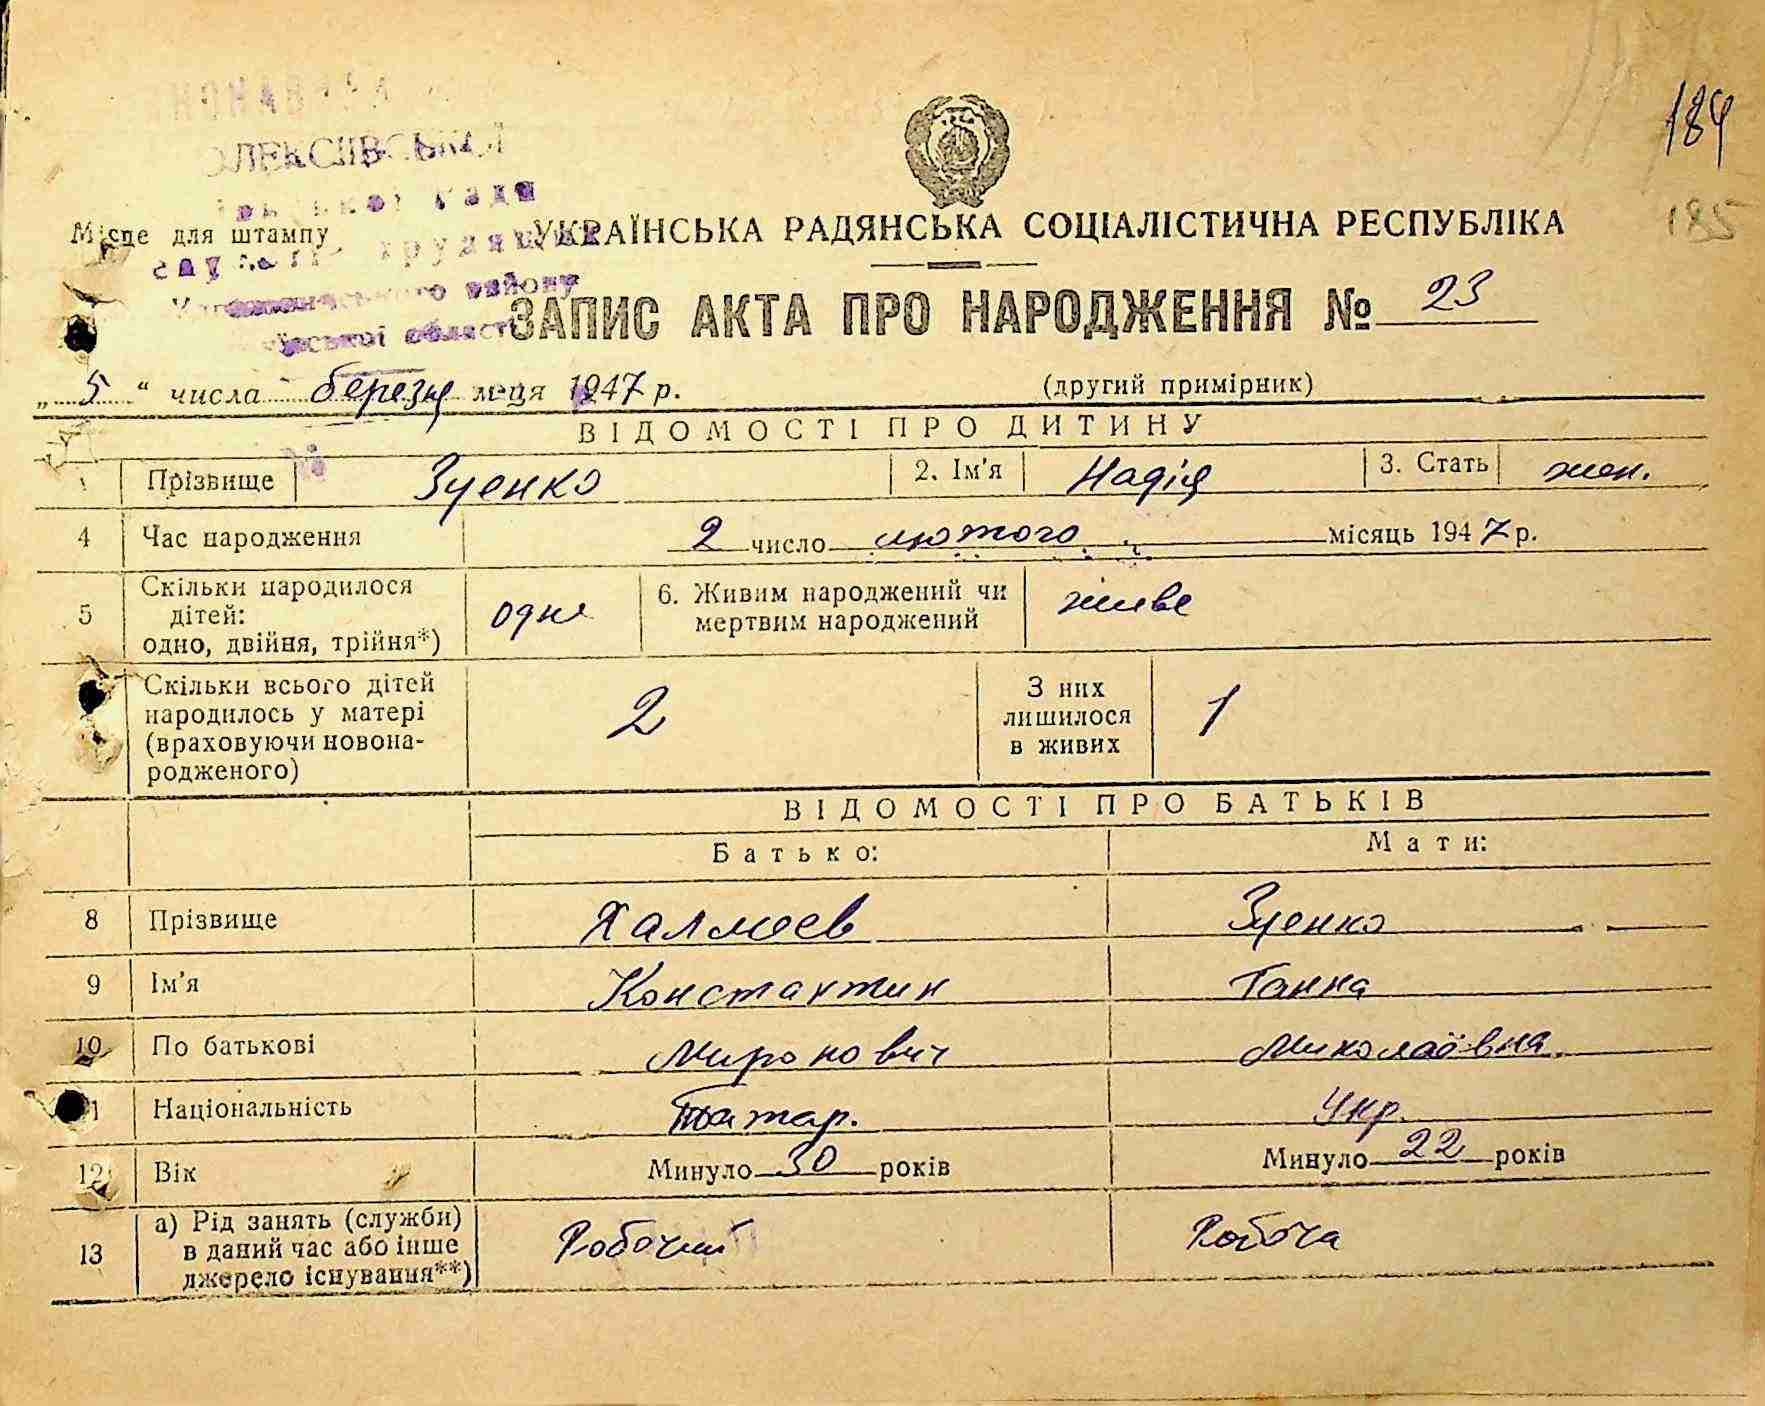 184
185
ОЛЕКСІЇВСЬКОЇ
Місце для штампу
району
УКРАЇНСЬКА РАДЯНСЬКА СОЦІАЛІСТИЧНА РЕСПУБЛІКА
ЗАПИС АКТА ПРО НАРОДЖЕННЯ № 23
„ 5 “ числа березня м-ця 1947 р. (другий примірник)
ВІДОМОСТІ ПРО ДИТИНУ
Прізвище Зуенко 2. Ім'я Надія 3. Стать жен.
4 Час народження 2 число лютого місяць 1947 р.
5 Скільки народилося дітей: одно, двійня, трійня*) одне 6. Живим народжений чи мертвим народжений живе
Скільки всього дітей народилось у матері (враховуючи новонародженого) 2 З них лишилося в живих 1
ВІДОМОСТІ ПРО БАТЬКІВ
Батько: Мати:
8 Прізвище Халмеев Зуенко
9 Ім'я Константин Ганна
10 По батькові Миронович Миколаївна
11 Національність Татар. Укр.
12 Вік Минуло 30 років Минуло 22 років
13 а) Рід занять (служби) в даний час або інше джерело існування**) Робочий Робоча